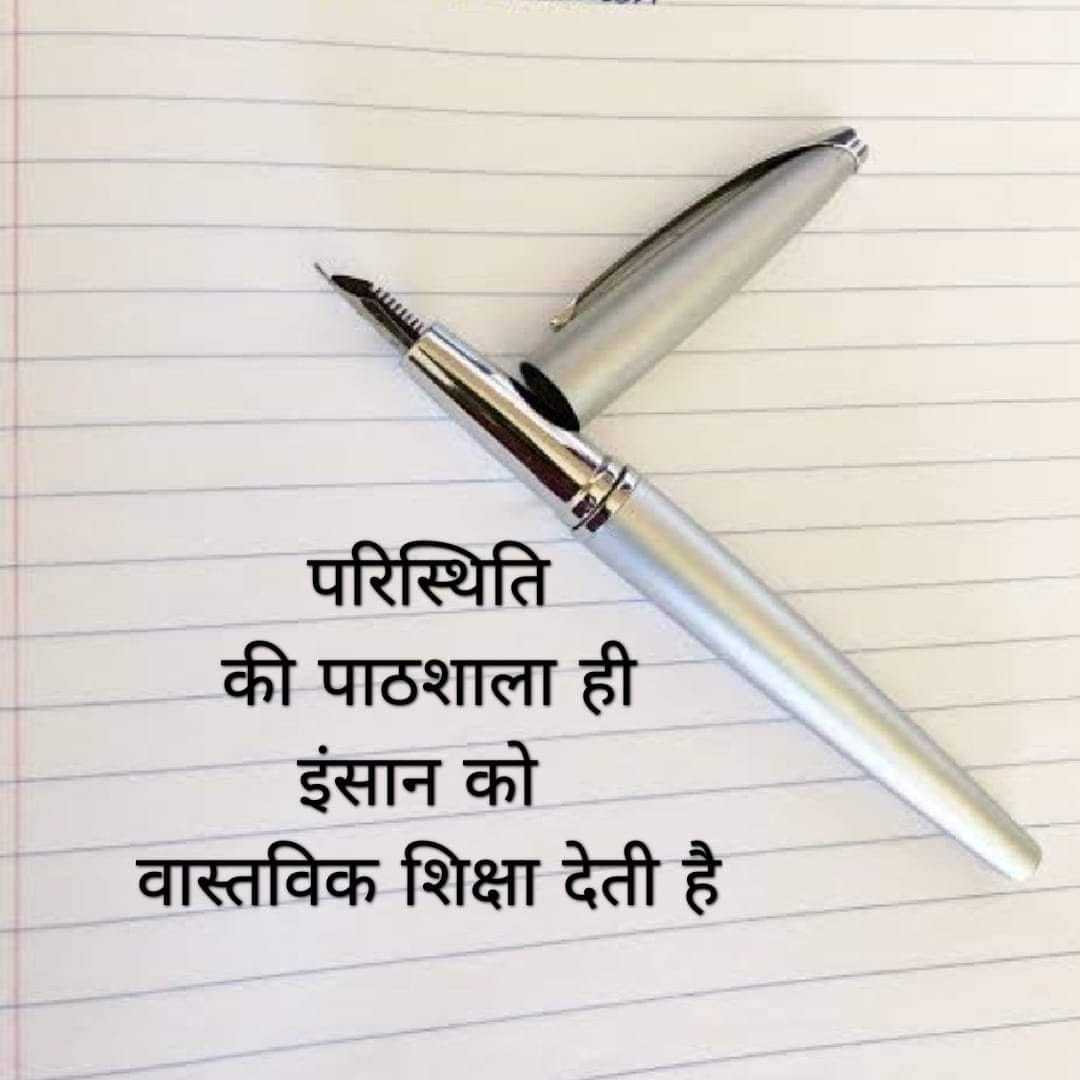 परिस्थिति
की पाठशाला ही
इंसान को
वास्तविक शिक्षा देती है